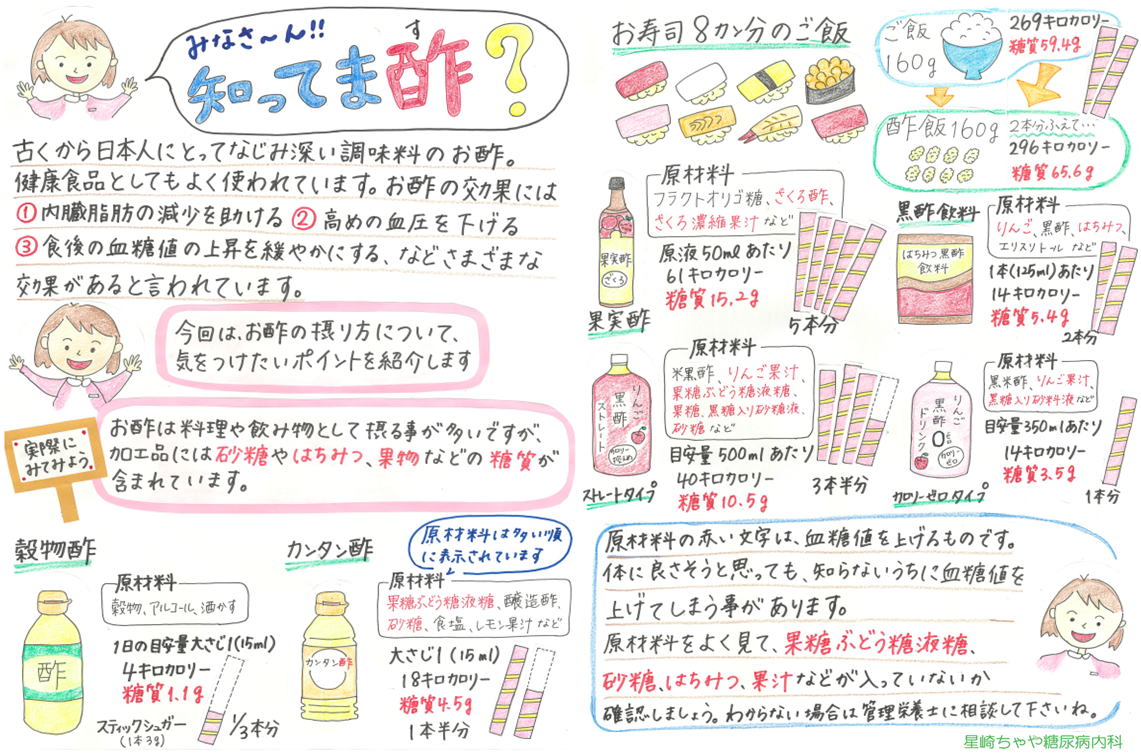 みなさ～ん!!
す
知ってま酢?
古くから日本人にとってなじみ深い調味料のお酢。
健康食品としてもよく使われています。お酢の効果には
①内臓脂肪の減少を助ける ②高めの血圧を下げる
③食後の血糖値の上昇を緩やかにする、などさまざまな
効果があると言われています。
今回は、お酢の摂り方について、
気をつけたいポイントを紹介します
実際に
みてみよう
お酢は料理や飲み物として摂る事が多いですが、
加工品には砂糖やはちみつ、果物などの糖質が
含まれています。
穀物酢
原材料
穀物、アルコール、酒かす
酢
1日の目安量大さじ1(15ml)
4キロカロリー
糖質1.1g
スティックシュガー
(1本3g)
1/3本分
カンタン酢
原材料は多い順
に表示されています
原材料
果糖ぶどう糖液糖、醸造酢、
砂糖、食塩、レモン果汁など
カンタン酢
大さじ1(15ml)
18キロカロリー
糖質4.5g
1本半分
お寿司8カン分のご飯
ご飯
160g
269キロカロリー
糖質59.4g
酢飯160g
2本分ふえて…
296キロカロリー
糖質65.6g
原材料
フラクトオリゴ糖、ざくろ酢、
ざくろ濃縮果汁など
果実酢
ざくろ
原液50mlあたり
61キロカロリー
糖質15.2g
果実酢
5本分
黒酢飲料
原材料
りんご、黒酢、はちみつ、
エリスリトールなど
はちみつ黒酢
飲料
1本(125ml)あたり
14キロカロリー
糖質5.4g
2本分
原材料
米黒酢、りんご果汁、
果糖ぶどう糖液糖、
果糖、黒糖入り砂糖液、
砂糖など
りんご
黒酢
ストレート
カロリー
控えめ
目安量500mlあたり
40キロカロリー
糖質10.5g
ストレートタイプ
3本半分
原材料
黒米酢、りんご果汁、
黒糖入り砂料液など
りんご
黒酢
ドリンク
カロリー
ゼロ
目安量350mlあたり
14キロカロリー
糖質3.5g
カロリーゼロタイプ
1本分
原材料の赤い文字は、血糖値を上げるものです。
体に良さそうと思っても、知らないうちに血糖値を
上げてしまう事があります。
原材料をよく見て、果糖ぶどう糖液糖、
砂糖、はちみつ、果汁などが入っていないか
確認しましょう。わからない場合は管理栄養士に相談して下さいね。
星崎ちゃや糖尿病内科